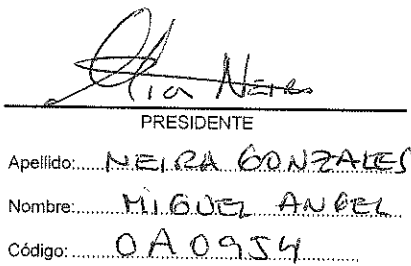 Neira
PRESIDENTE
Apellido: NEIRA GONZALES
Nombre: MIGUEL ANGEL
Código: 0A0954